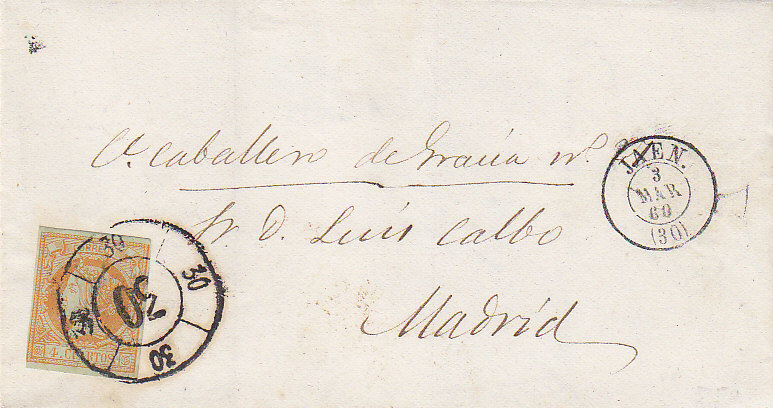 C. Caballero de Gracia nº
Sr. D. Luis Calbo
Madrid
JAEN.
3
MAR
60
(30)
CORREOS
30
30
30
30
4. CUARTOS